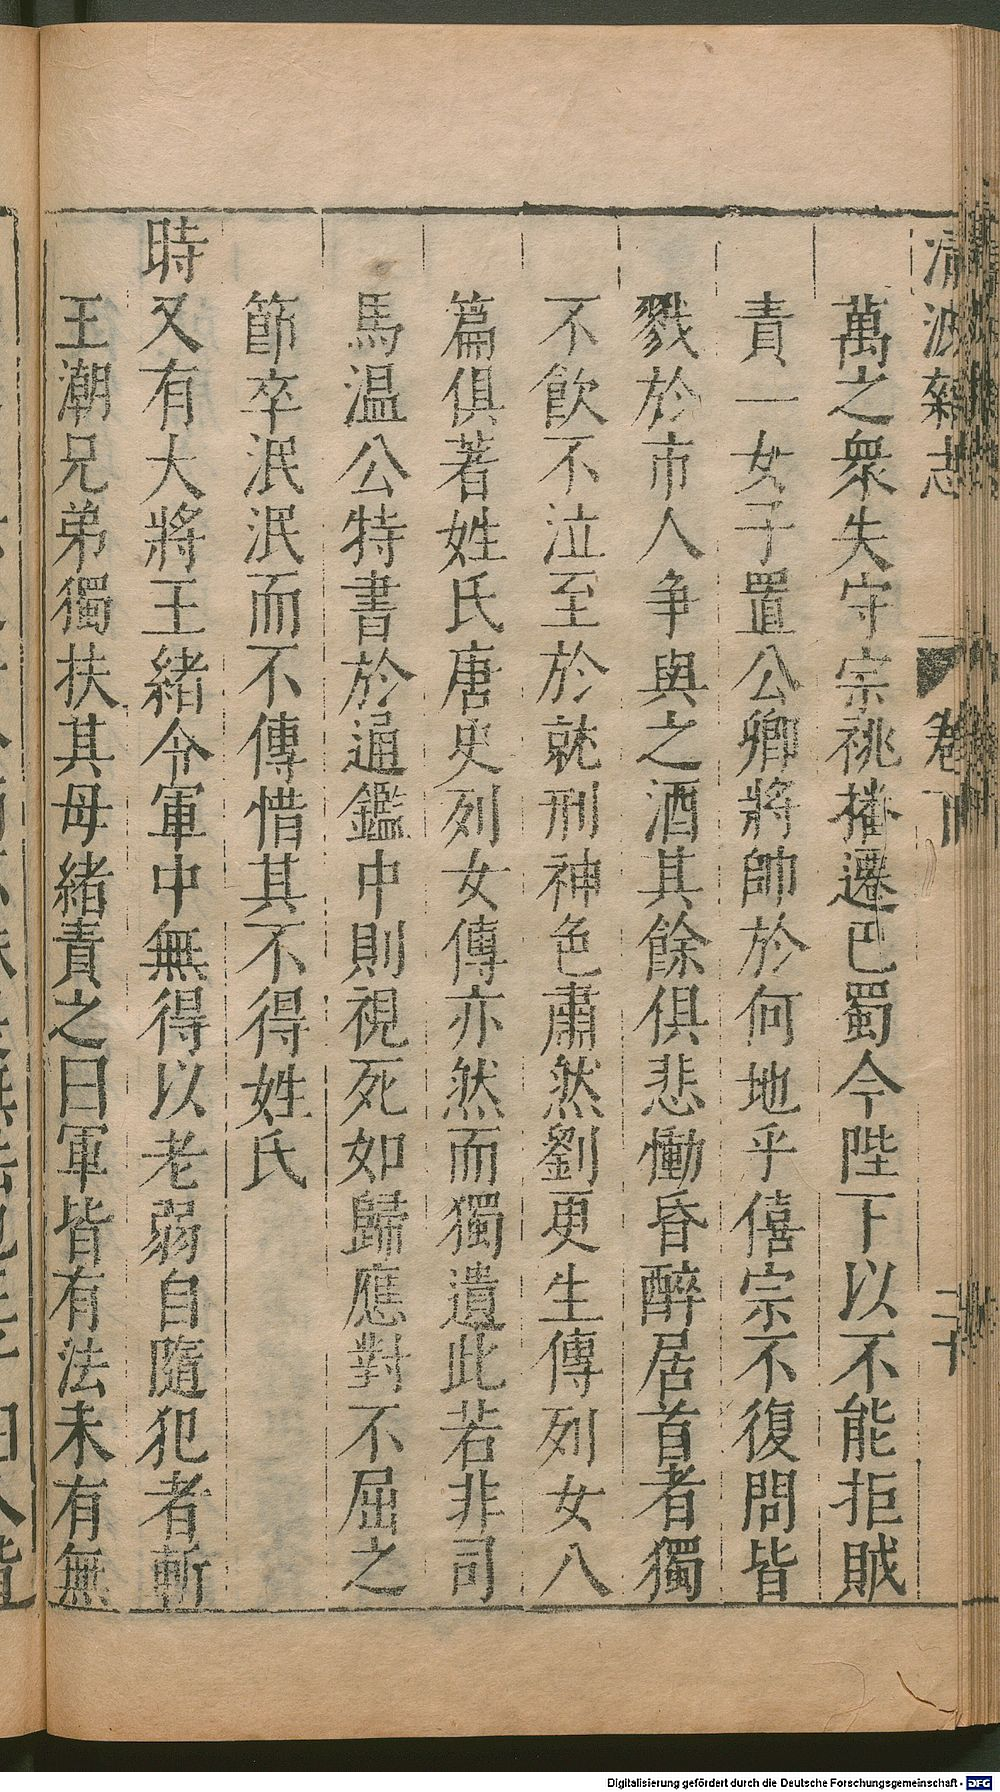 清波雜志 卷下 二十
萬之衆失守宗祧播遷巴蜀今陛下以不能拒賊
責一女子置公卿將帥於何地乎僖宗不復問皆
戮於市人争與之酒其餘俱悲慟昏醉居首者獨
不飲不泣至於就刑神色肅然劉更生傳列女八
篇俱著姓氏唐史列女傳亦然而獨遺此若非司
馬温公特書於通鑑中則視死如歸應對不屈之
節卒泯泯而不傳惜其不得姓氏
時又有大將王緒令軍中無得以老弱自隨犯者斬
王潮兄弟獨扶其母緒責之曰軍皆有法未有無
Digitalisierung gefördert durch die Deutsche Forschungsgemeinschaft - DFG